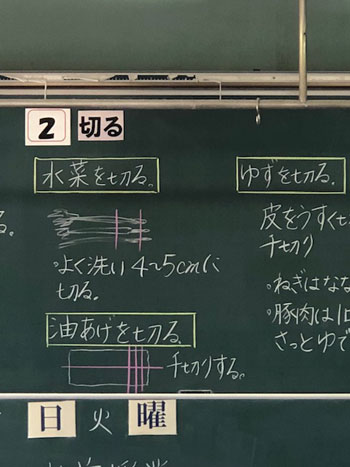 2 切る
水菜を切る。
・よく洗い4~5cmに
切る。
油あげを切る。
千切りする。
ゆずを切る。
皮をうすく
千切り
・ねぎはなな
・豚肉は
さっとゆで
る。
日 火 曜